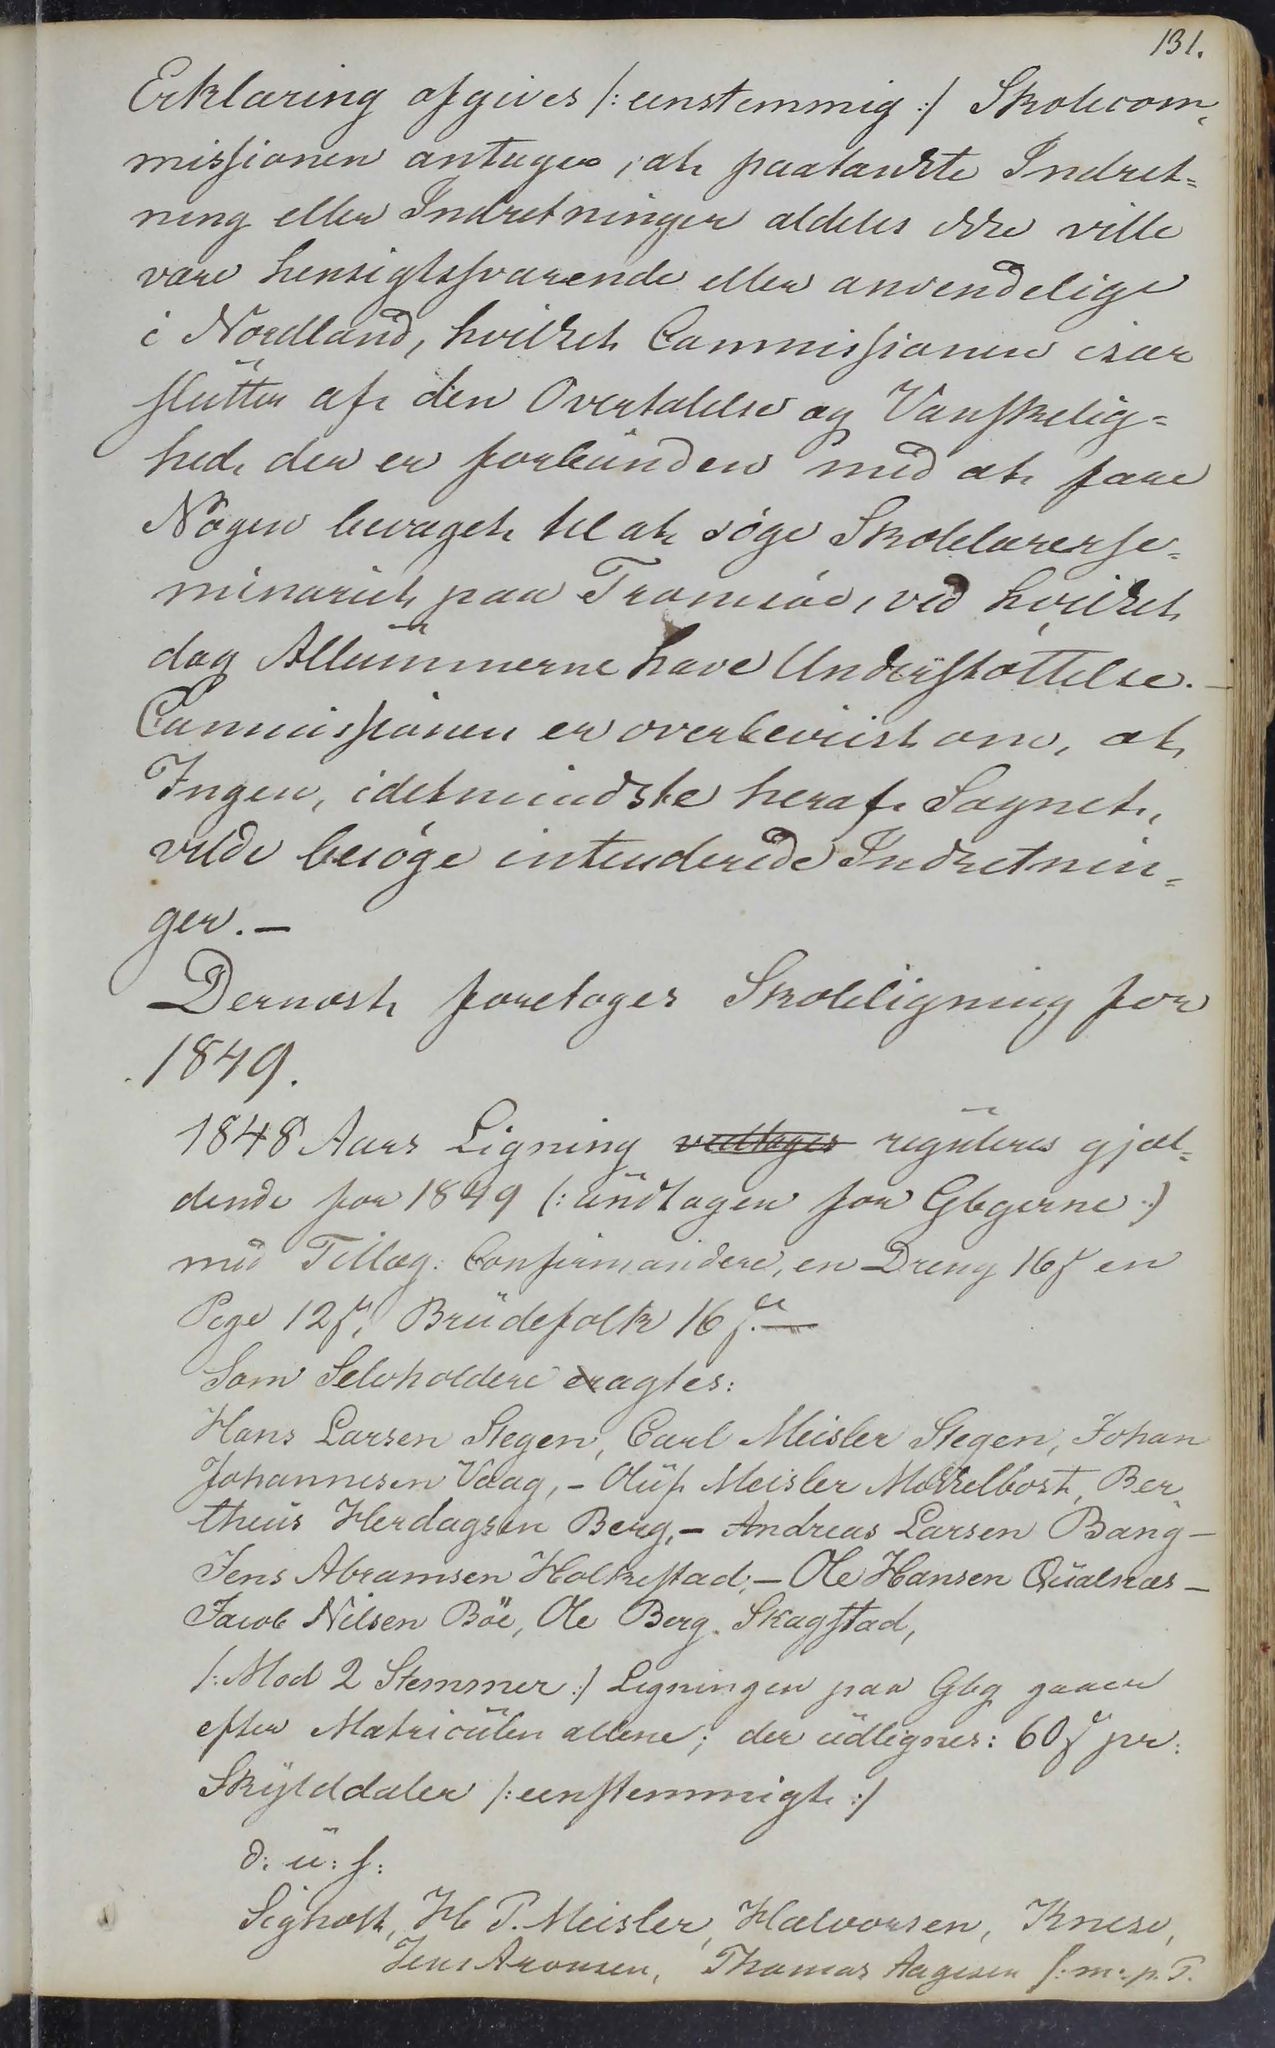 131.
Erklæring afgives /: eenstemmig :/ Skolecom-
missionen antager, at paatænkte Indret=
ning eller Indretninger aldeles ikke ville
være hensigtssvarende eller anvendelige
i Nordland, hvilket Commissionen især
slutter af den Overtalelse og Vanskelig=
hed, der er forbunden med at faae
Nogen bevæget til at søge Skolelærerse=
minariet paa Tromsøe, ved hvilket
dog Allumnerne have Understøttelse. -
Commissionen er overbeviist om, at
Ingen, idetmindste heraf Sognet,
vilde besøge intenderede Indretnin=
ger. -
Dernæst foretoges Skoleligning for
1849.
1848 Aars Ligning vedtages reguleres gjæl=
dende for 1849 (: undtagen for Gbgerne :)
med Tillæg: Confirmandere, en Dreng 16ß en
Pige 12ß, Brudefolk 16ß. -
Som Selvholdere eragtes:
Hans Larsen Stegen, Carl Meisler Stegen, Johan
Johannesen Vaag, - Oluf Meisler Mørkelbost, Ber=
theus Herdagsen Berg, - Andreas Larsen Bang -
Jens Abramsen Holkestad; - Ole Hansen Qualnæs -
Jacob Nilsen Böe, Ole Berg. Skagstad,
/: Mod 2 Stemmer :/ Ligningen paa Gbg gaaer
efter Matriculen allene; der udlignes: 60ß pr:
Skylddaler /: eenstemmigt :/
d: u: s:
Sigholt, H P. Meisler, Halvorsen, Knese,
Jens Aronsen, Thomas Aagesen /: m: p. P.